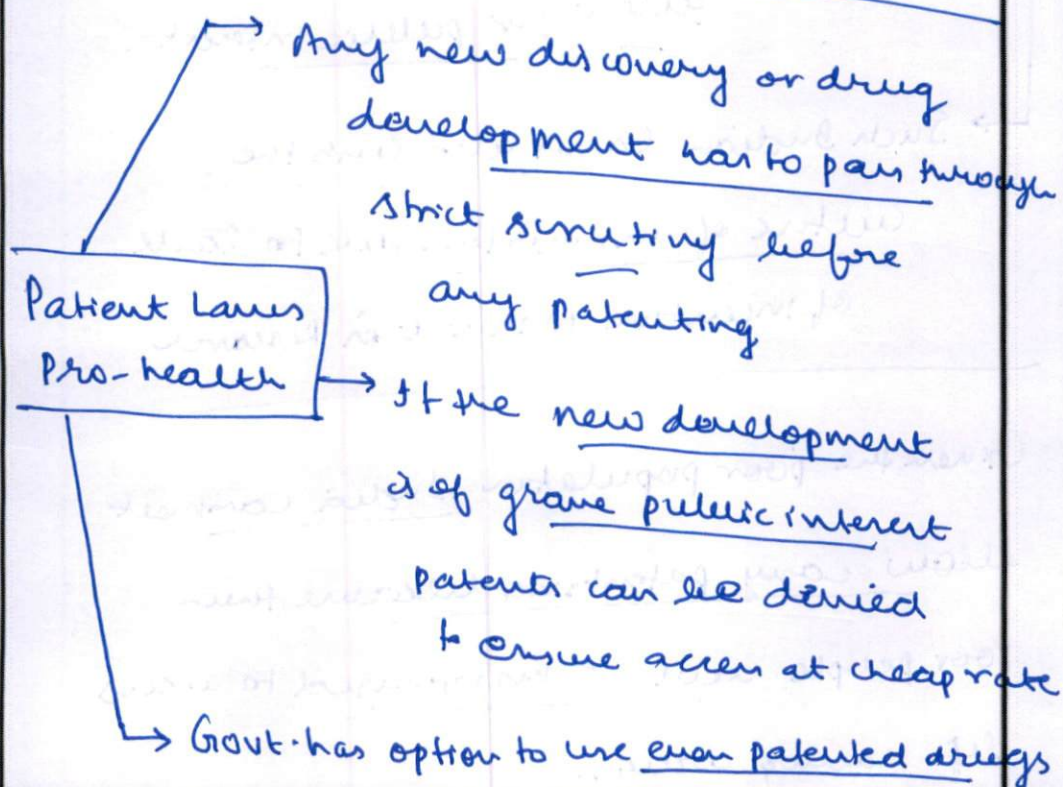 Any new discovery or drug
development has to pass through
strict scrutiny before
any patenting
Patient Laws
Pro-health
If the new development
is of grave public interest
patents can be denied
to ensure access at cheap rate
Govt. has option to use even patented drugs